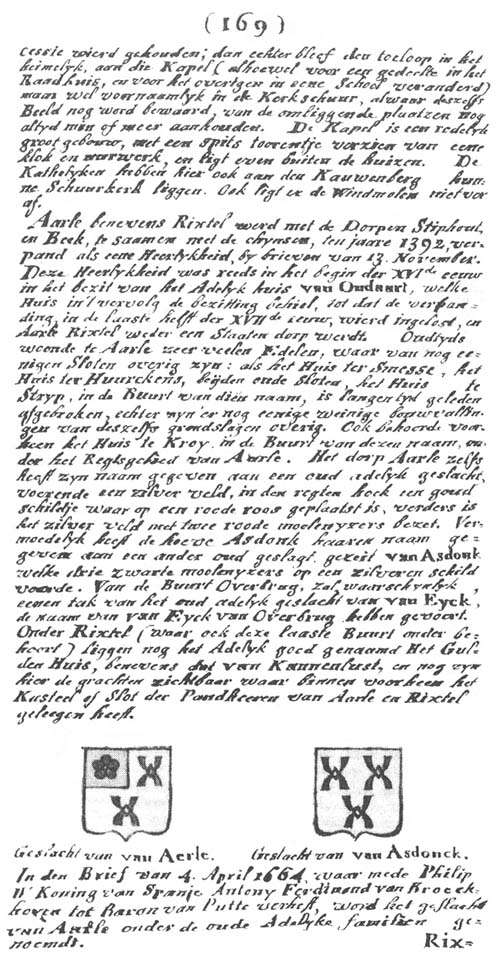 (169)
cessie wierd gehouden; dan echter bleef den toeloop in het
heimelyk, aan die Kapel (alhoewel voor een gedeelte in het
Raadhuis, en voor het overigen in eene School veranderd)
maar wel voornaamlyk in de Kerkschuur, alwaar deszelfs
Beeld nog werd bewaard, van de omliggende plaatzen nog
altyd min of meer aanhouden. De Kapel is een redelyk
groot gebouw, met een spits toorentje voorzien van eene
klok en uurwerk, en ligt even buiten de huizen. De
Katholyken hebben hier ook aan den Kauwenberg hun-
ne Schuurkerk liggen. Ook ligt er de Windmolen niet ver
af.
Aarle benevens Rixtel werd met de Dorpen Stiphout,
en Beek, te saamen met de chynsen, ten jaare 1392, ver-
pand als eene Heerlykheid, by brieven van 13. November.
Deze Heerlykheid was reeds in het begin der XVIde eeuw
in het bezit van het Adelyk huis van Oudaart, welke
Huis in 't vervolg de bezitting behiel, tot dat de verpan-
ding, in de laaste helft der XVIIde eeuw, wierd ingelost, en
Aarle Rixtel weder een Staaten dorp werdt. Oudtyds
woonde te Aarle zeer veelen Edelen, waar van nog ee-
nigen Sloten overig zyn: als het Huis ter Smesse, het
Huis ter Huurckens, beijden oude Sloten, het Huis te
Stryp, in de Buurt van dien naam, is langen tyd geleden
afgebroken, echter zyn er nog eenige weinige bouwvallin-
gen van deszelfs grondslagen overig. Ook behoorde voor-
heen het Huis te Kroy, in de Buurt van dezen naam, on-
der het Regtsgebied van Aarle. Het dorp Aarle zelfs
heeft zyn naam gegeven aan een oud adelyk geslacht,
voerende een zilver veld, in den regten hoek een goud
schildje waar op een roode roos geplaatst is, verders is
het zilver veld met twee roode moolenyzers bezet. Ver-
moedelyk heeft de hoeve Asdonk haaren naam ge-
geven aan een ander oud geslagt, gezeit van Asdonk
welke drie zwarte moolenyzers op een zilveren schild
voerde. Van de Buurt Overbrug, zal waarschynlyk,
eenen tak van het oud adelyk geslacht van van Eyck,
de naam van van Eyck van Overbrug hebben gevoert.
Onder Rixtel (waar ook deze laaste Buurt onder be-
hoort) liggen nog het Adelyk goed genaamd Het Gul-
den Huis, benevens dat van Kannenlust, en nog zyn
hier de grachten zichtbaar waar binnen voorheen het
Kasteel of Slot der Pandheeren van Aarle en Rixtel
geleegen heeft.
Geslacht van van Aerle. Geslacht van van Asdonck.
In den Brief van 4. April 1664, waar mede Philip
IV Koning van Spanje Antony Ferdinand van Broeck-
hoven tot Baron van Putte verheft, word het geslacht
van Aarle onder de oude Adelyke familien ge-
noemdt. Rix=